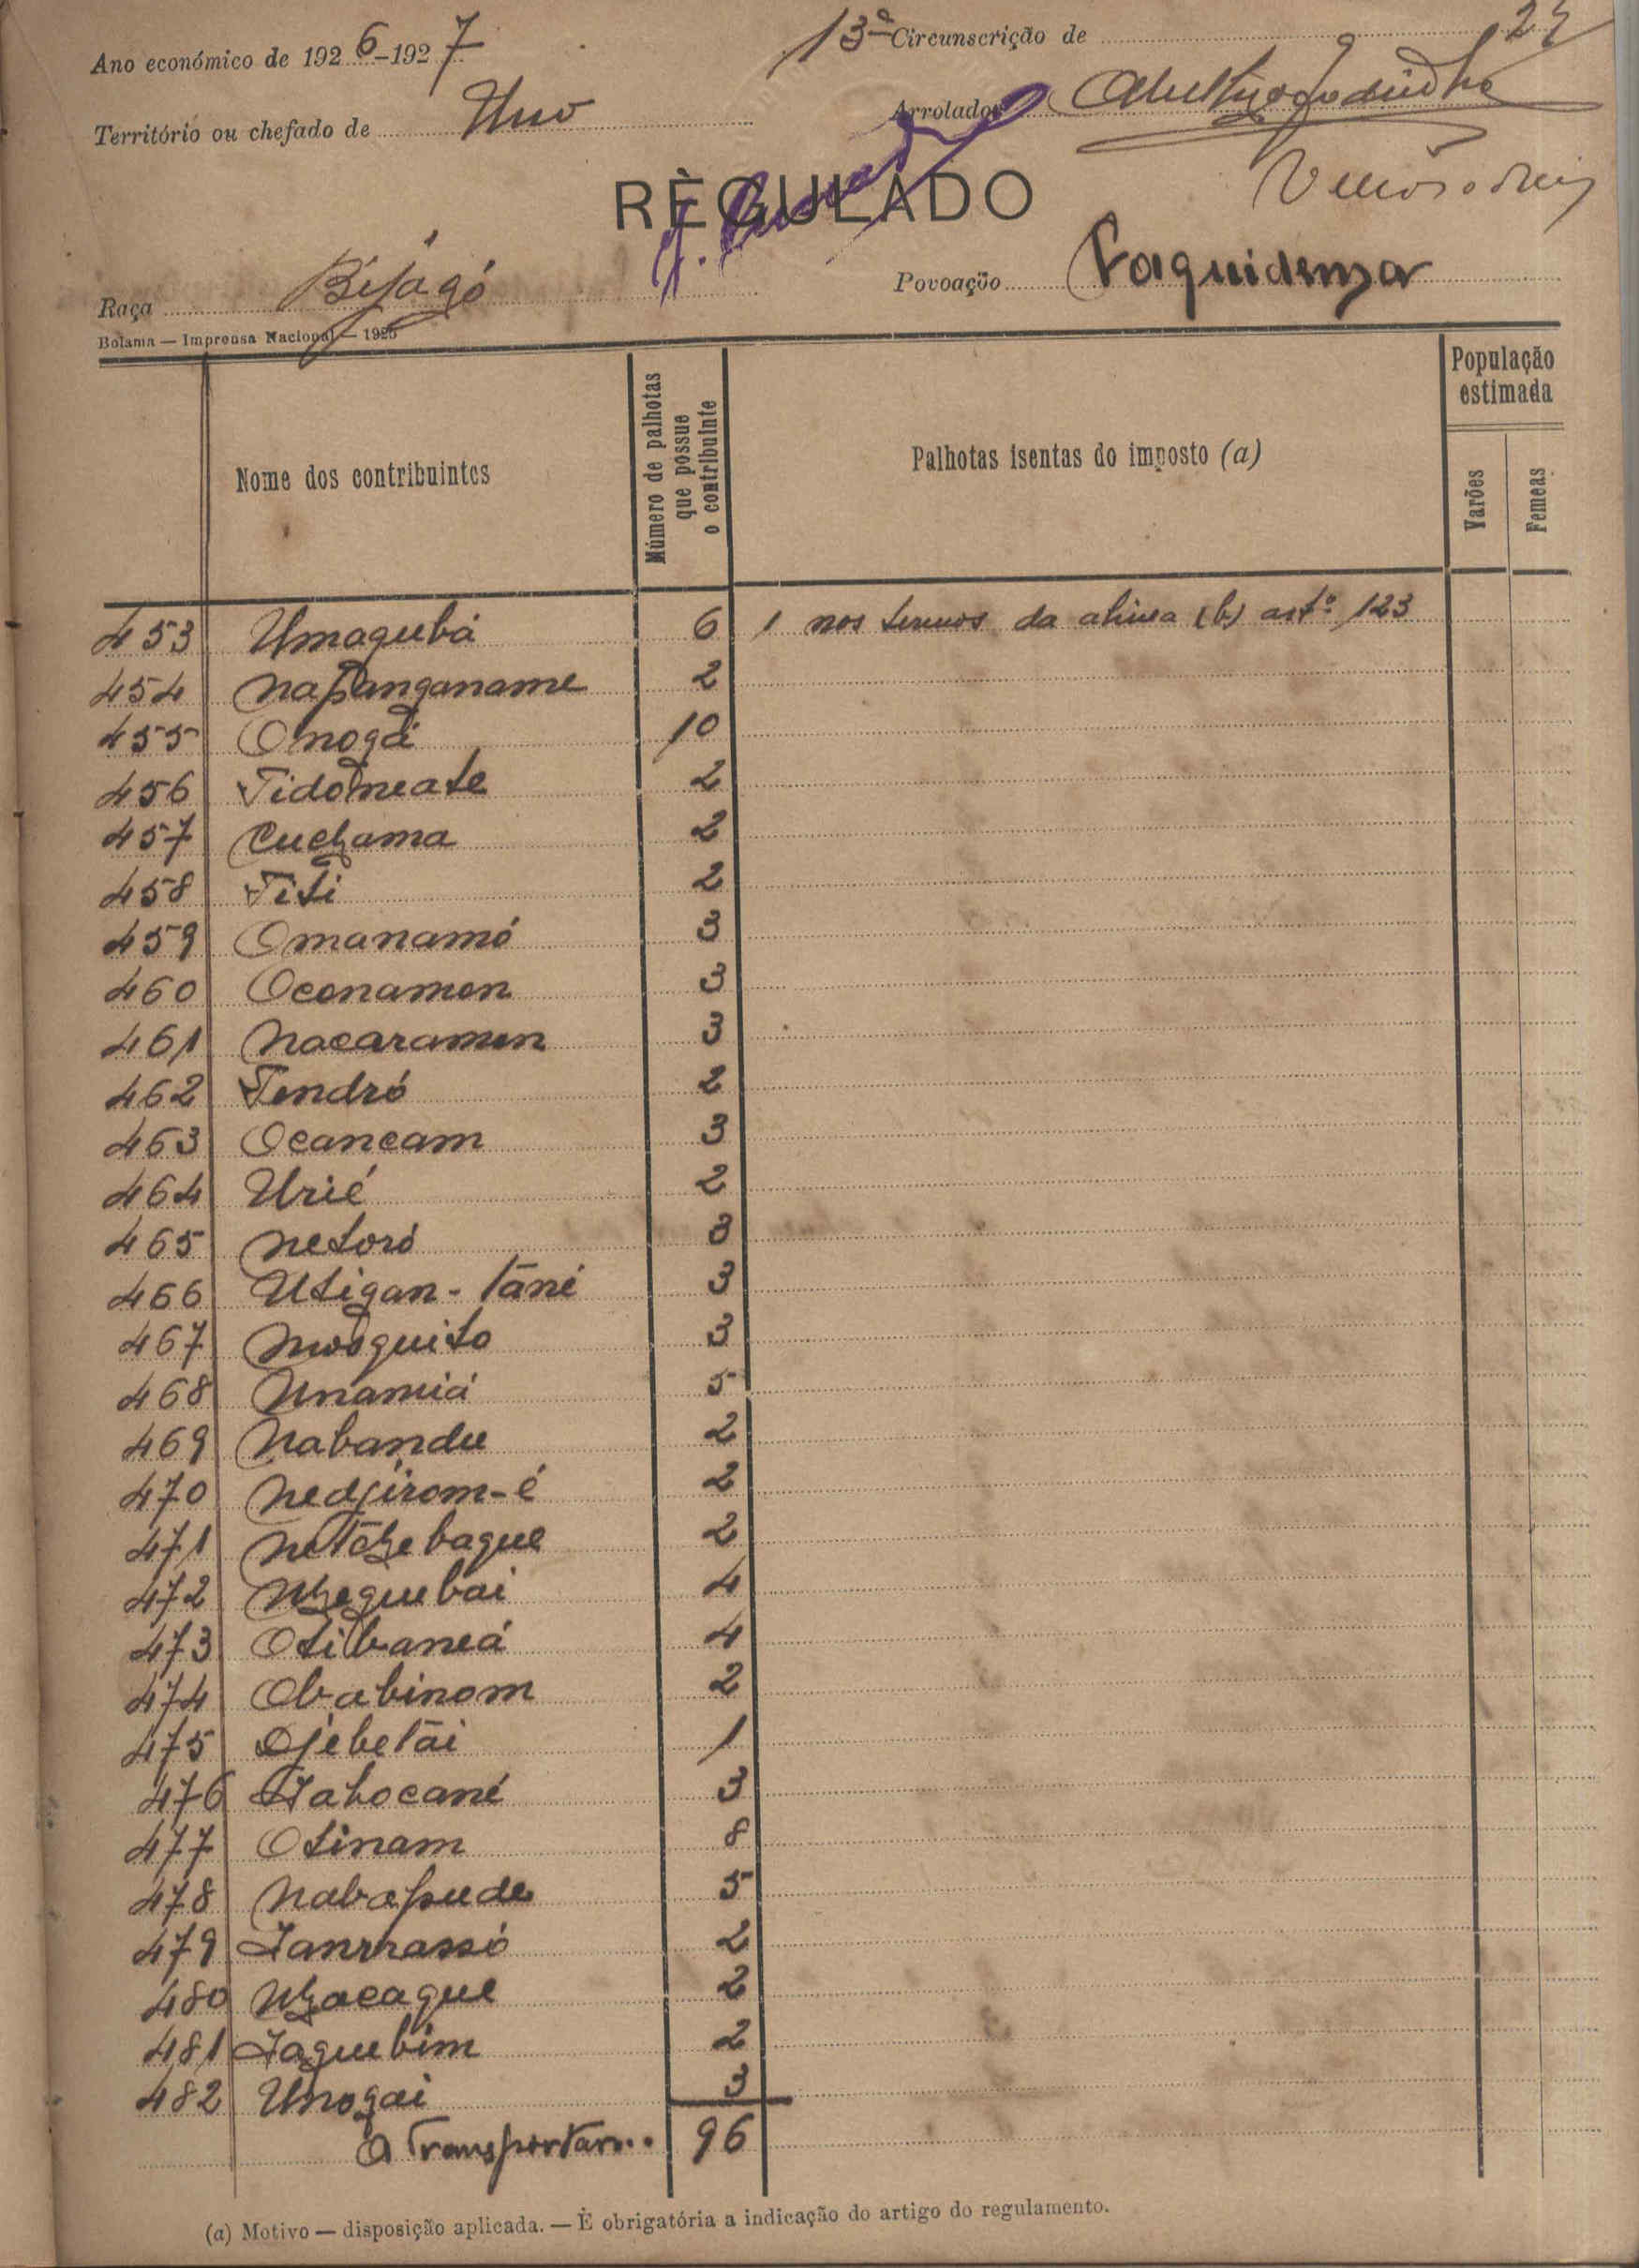 Ano económico de 1926-1927 13ª Circunscrição de
Território ou chefado de Uno Arrolador
RÈGULADO
Raça Bijágó Povoação
Bolama — Imprensa Nacional — 1925
Nome dos contribuintes
Número de palhotas que possue o contribuinte
Palhotas isentas do imposto (a)
População estimada
Varões
Femeas
453 Umagubá 6 1 nos termos da alinea (b) artº 123
454 Napanganame 2
455 Onogá 10
456 Tidomeate 2
457 Cuchama 2
458 Titi 2
459 Omanamó 3
460 Oconamon 3
461 Nacaramon 3
462 Tendró 2
463 Ocancam 3
464 Urié 2
465 Netoró 3
466 Utigan-Tané 3
467 Mosquito 3
468 Unamiá 5
469 Nabandu 2
470 Nedjirom-é 2
471 2
472 4
473 Otibaneá 4
474 Obabinom 2
475 Djebetai 1
476 3
477 Otinam 8
478 Nabapude 5
479 2
480 2
481 Jaguebim 2
482 Unogai 3
A Transportar... 96
(a) Motivo — disposição aplicada. — È obrigatória a indicação do artigo do regulamento.